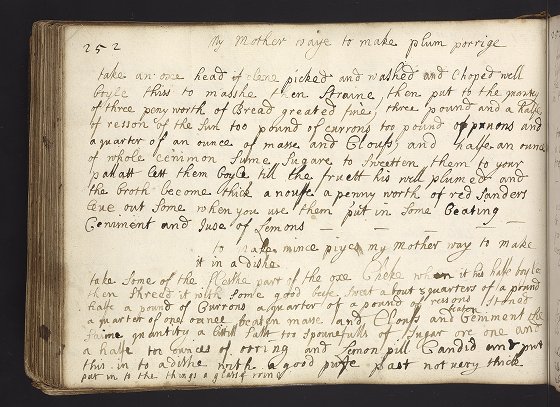 252
My Mother waye to make plum porrige
take an oxe head of clene picked and washed and Choped well
boyle this to mashe then straine, then put to the quantity
of three peny worth of Bread greated fine, three pound and a halfe
of reson of the sun too pound of currons too pound of prunons and
a quarter of an ounce of masse and Clouss, and halfe an ounce
of whole cenimon sume sugare to sweetten them to your
pallatt lett them boyle till the fruett his well plumed and
the broth become thick anoufe a penny worth of red Sanders
leve out some when you use them put in some beating
Ceniment and Juse of lemons
to make mince piyes my mother way to make
it in a dishe
take some of the fleshe part of the oxe Cheke when it his halfe boyle
then shreed it with some good beefe sweet about 3 quarters of a pound
halfe a pound of Currons a quarter of a pound of resons stoned
a quarter of one ounce beaten mase and Clouss and Ceniment the
same quantity a littell salt too spounefulls of sugar ore one and
a halfe too ounces of orring and lemon pill Candid and put
this in to a dishe with a good puffe past not very thick
put in to the things a glass of wine